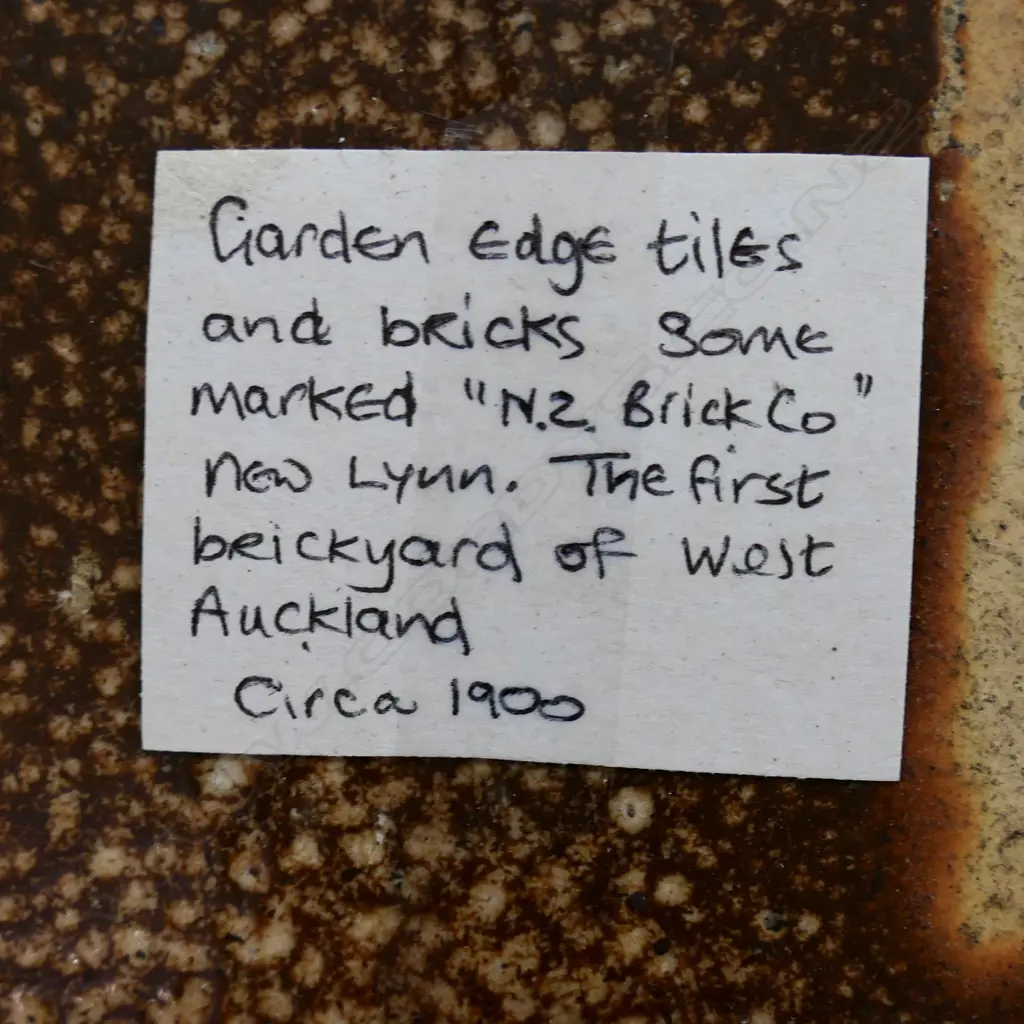 Garden Edge tiles
and bricks Some
marked "N.Z. Brick Co"
New Lynn. The first
brickyard of West
Auckland
Circa 1900